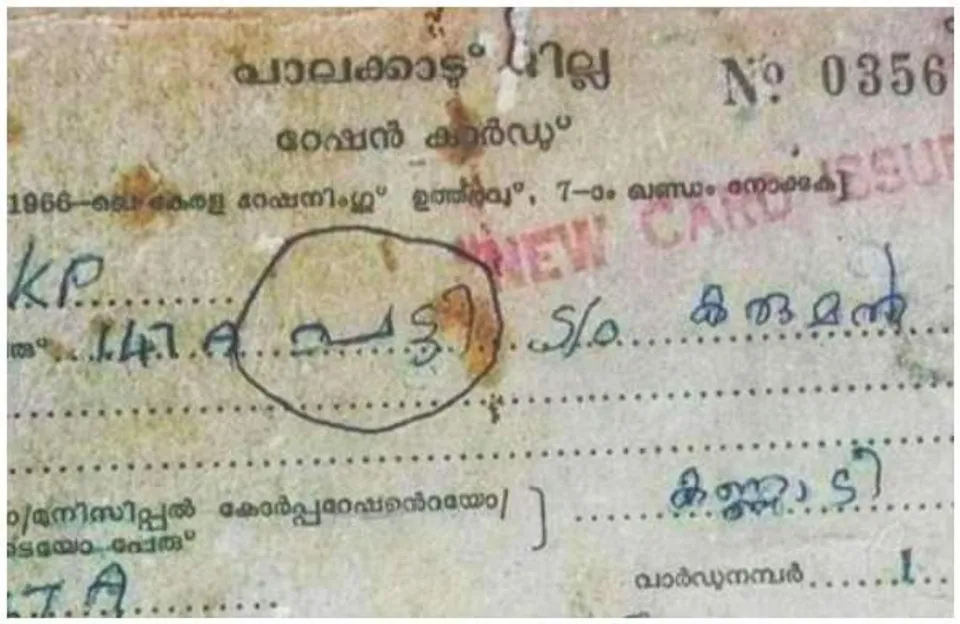 പാലക്കാട്ട് ജില്ല
Nº 0356
റേഷൻ കാർഡ്
1966-ലെ കേരള റേഷനിംഗ് ഉത്തരവ്, 7-ാം ഖണ്ഡം നോക്കുക]
NEW CARD ISSU
KP
147 A പട്ടി S/o കരുമൻ
/മുനിസിപ്പൽ കോർപ്പറേഷൻെറയോ/
ടെയോ പേരു്
കണ്ണാടി
7 A
വാർഡുനമ്പർ 1